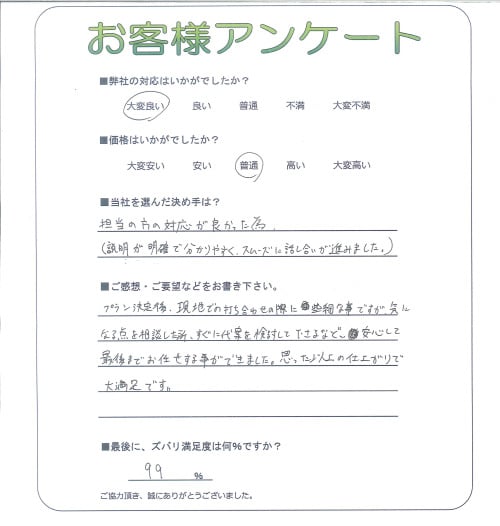 お客様アンケート
■弊社の対応はいかがでしたか？
大変良い 良い 普通 不満 大変不満
■価格はいかがでしたか？
大変安い 安い 普通 高い 大変高い
■当社を選んだ決め手は？
担当の方の対応が良かった為。
(説明が明確で分かりやすく、スムーズに話し合いが進みました。)
■ご感想・ご要望などをお書き下さい。
プラン決定後、現地での打ち合わせの際に些細な事ですが、気に
なる点を相談した所、すぐに代案を検討して下さるなど、安心して
最後までお任せする事ができました。思った以上の仕上がりで
大満足です。
■最後に、ズバリ満足度は何%ですか？
99 %
ご協力頂き、誠にありがとうございました。